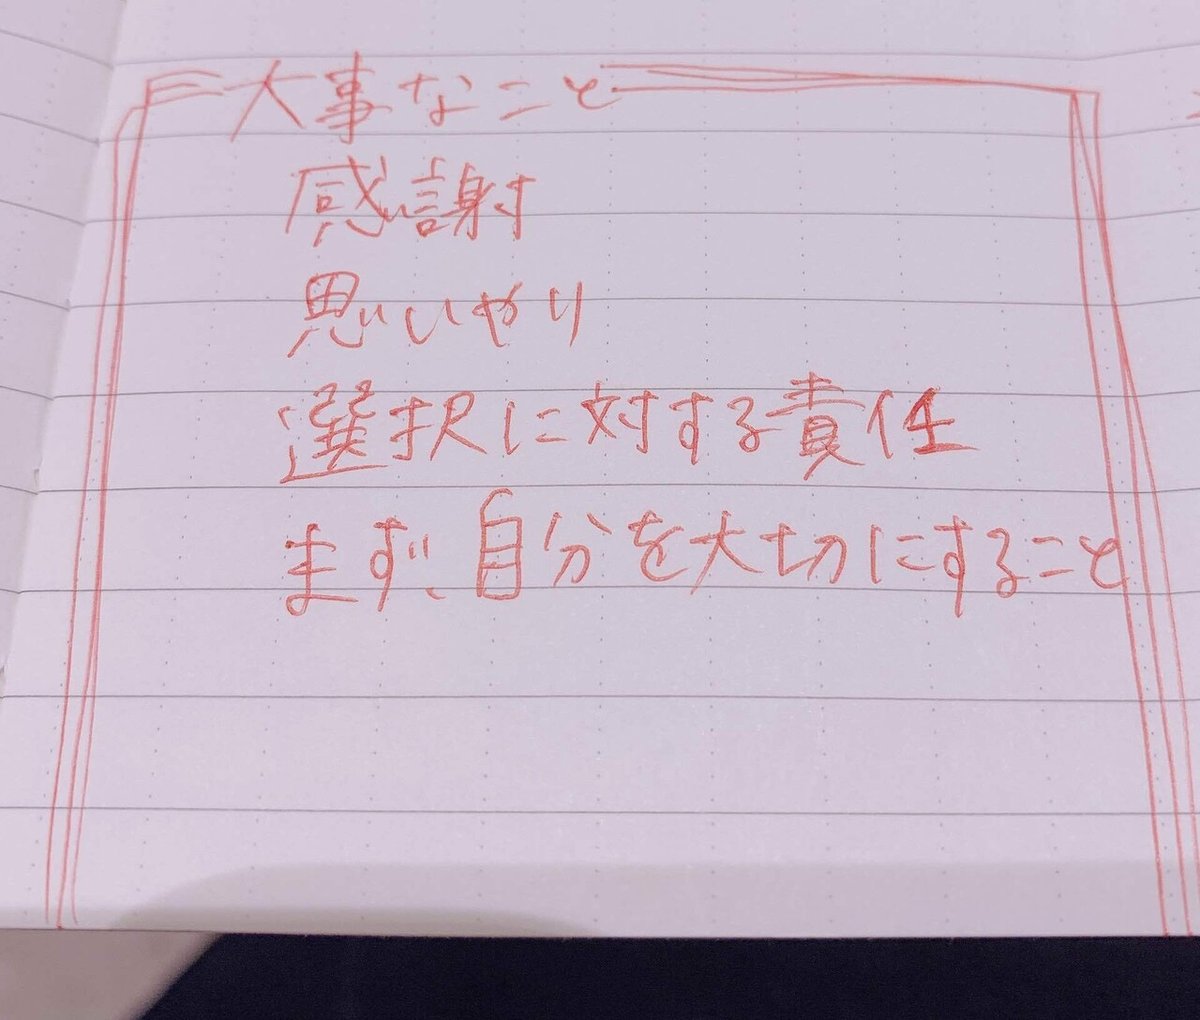 大事なこと
感謝
思いやり
選択に対する責任
まず、自分を大切にすること